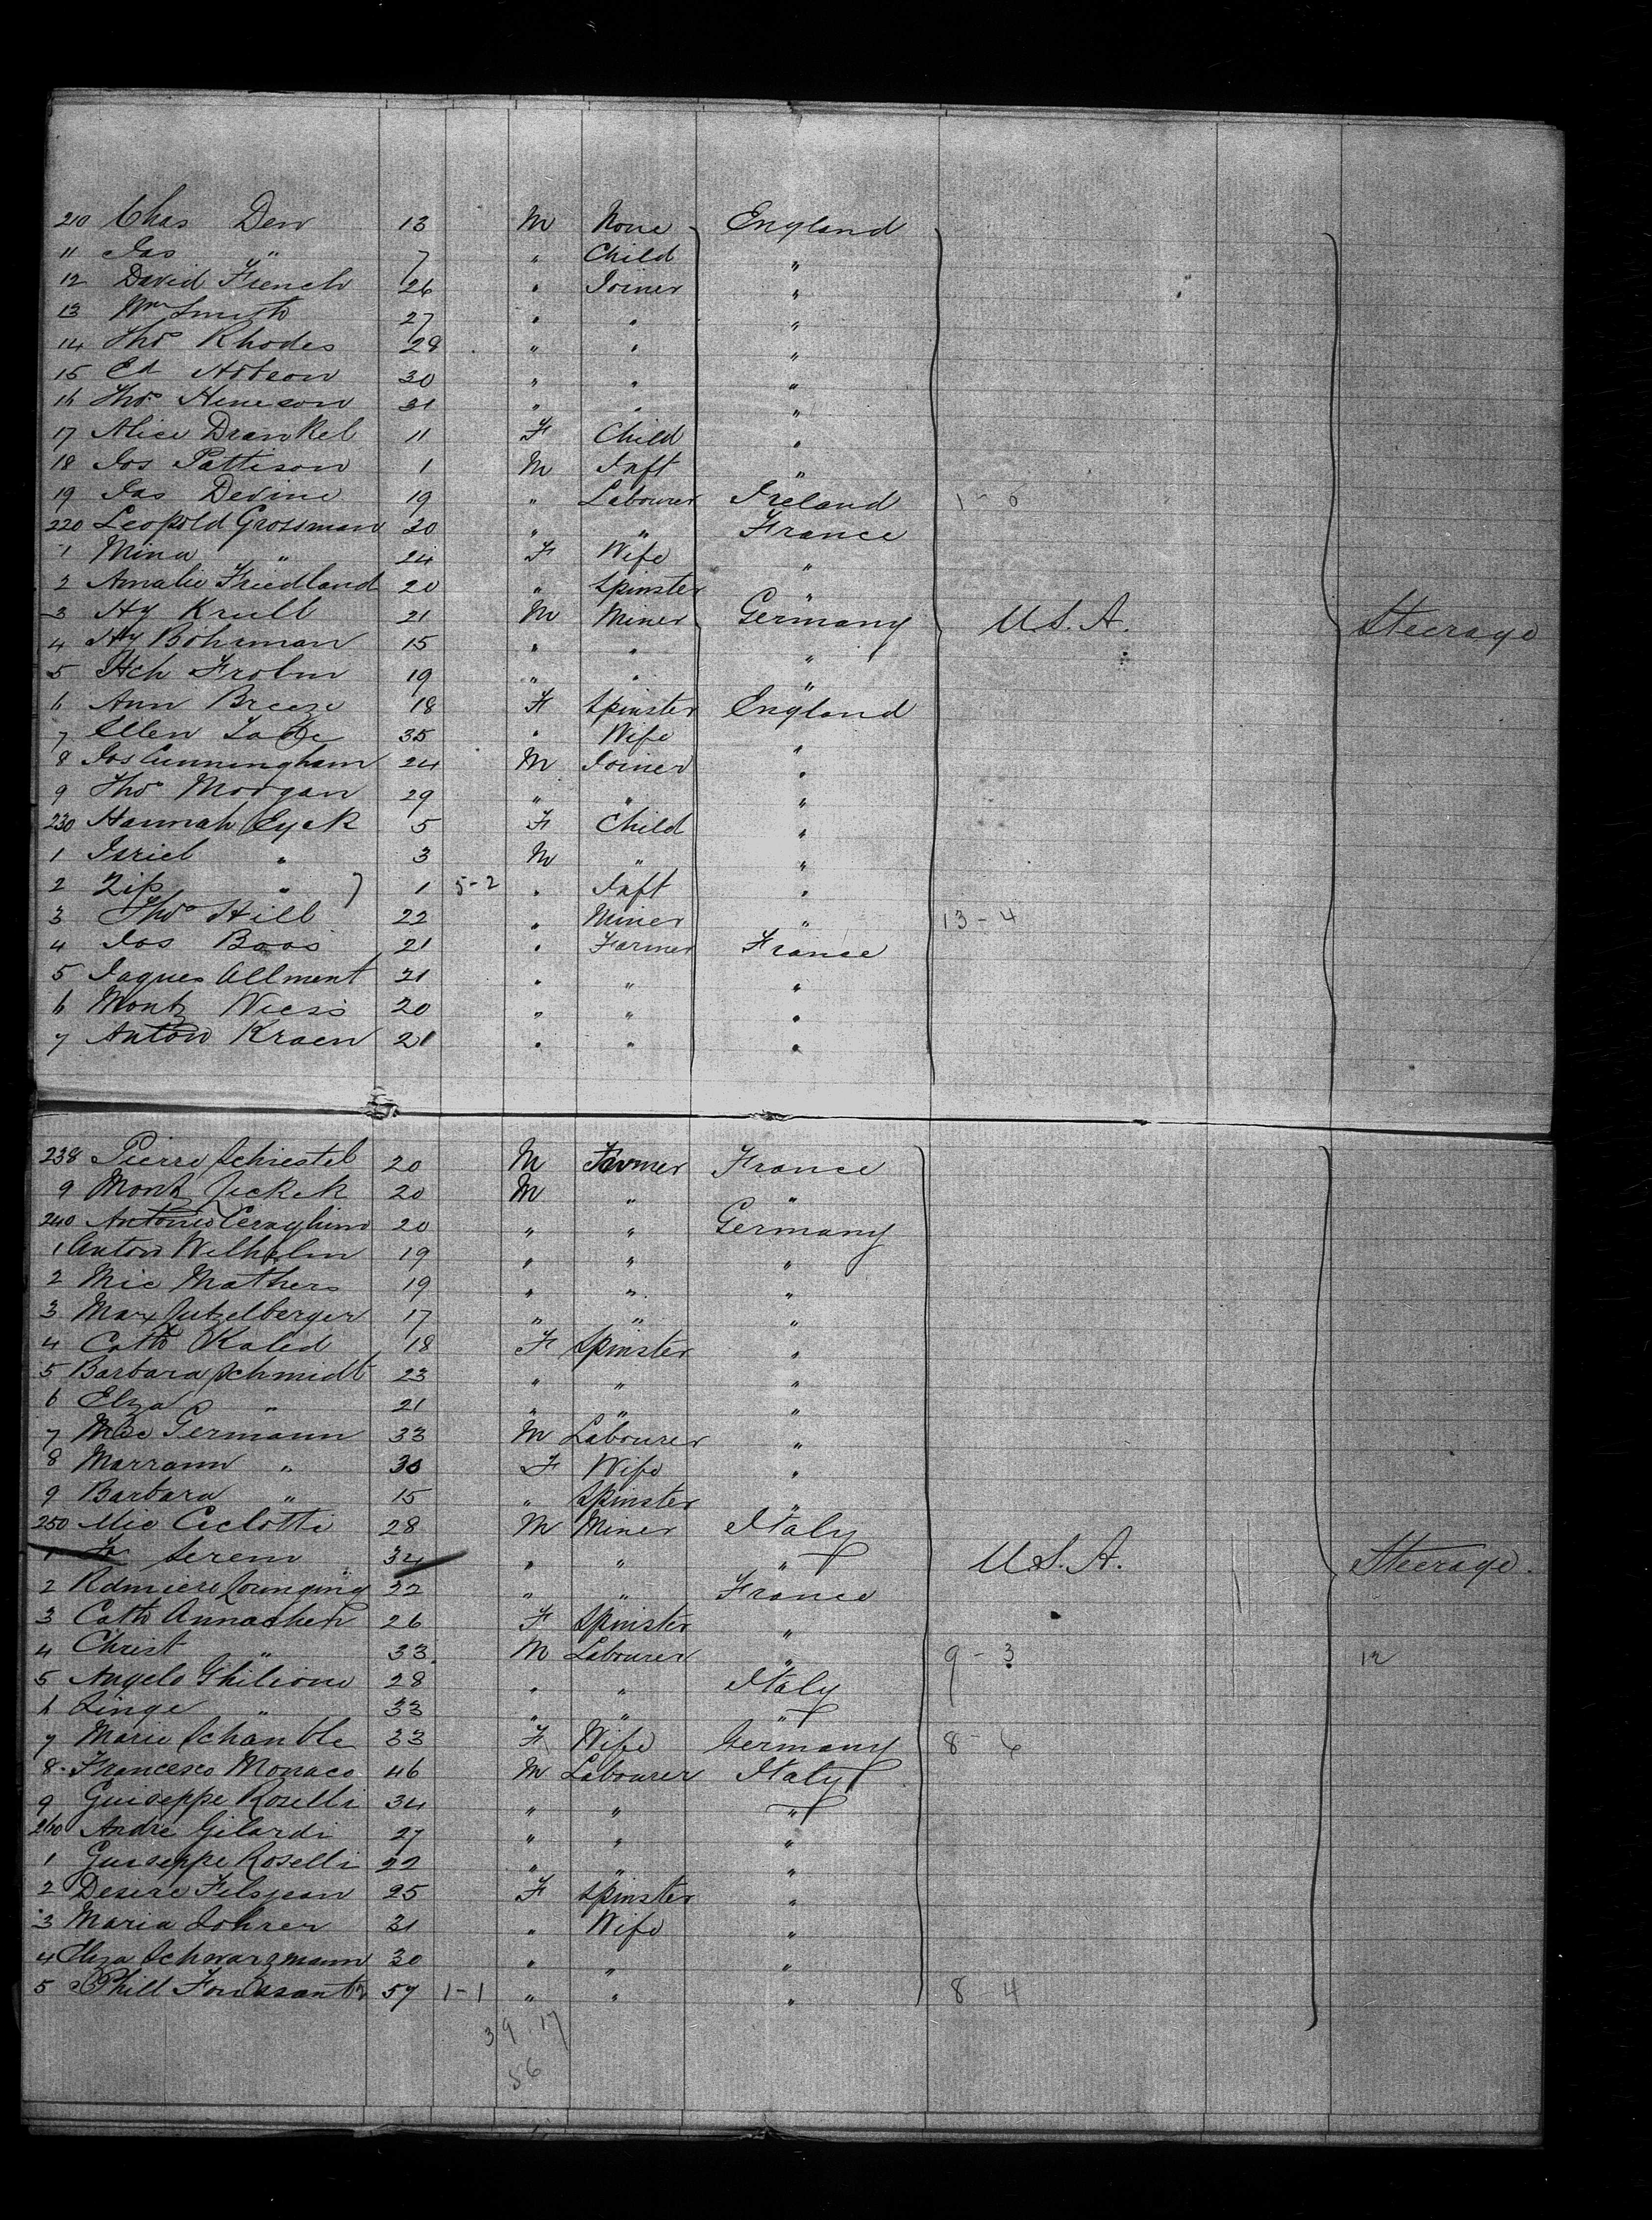 210 Chas Dew 13 M None England
11 Jas " 7 " Child "
12 David French 26 " Joiner "
13 Wm Smith 27 " " "
14 Thos Rhodes 28 " " "
15 Ed 30 " " "
16 Thos 31 " " "
17 Alice Drankel 11 F Child "
18 Jos Pattison 1 M Inft "
19 Jas Devine 19 " Labourer Ireland 1-6
220 Leopold Grossman 20 " " France
1 Mina " 24 F Wife "
2 Amalie Friedland 20 " Spinster "
3 Hy Krull 21 M Miner Germany U.S.A. Steerage
4 Hy Bohrman 15 " " "
5 Hch Frohn 19 " " "
6 Ann Breeze 18 F Spinster England
7 Ellen 35 " Wife "
8 Jos Cunningham 24 M Joiner "
9 Thos Morgan 29 " " "
230 Hannah Eyck 5 F Child "
1 Isriel " 3 M " "
2 Zip " 1 5-2 " Inft "
3 Thos Hill 22 " Miner " 13-4
4 Jos Boos 21 " Farmer France
5 Jaques Allment 21 " " "
6 Montz Wiess 20 " " "
7 Anton Kraen 21 " " "
238 Pierre Schiestel 20 M Farmer France
9 Montz Jeckek 20 M " "
240 Antonio Ceraghino 20 " " Germany
1 Anton Wilhelm 19 " " "
2 Mic Mathers 19 " " "
3 Max Jutzelberger 17 " " "
4 Cath Kaled 18 F Spinster "
5 Barbara Schmidt 23 " " "
6 Elza " 21 " " "
7 Germann 33 M Labourer "
8 Marrann " 30 F Wife "
9 Barbara " 15 " Spinster "
250 Mic Ciclotti 28 M Miner Italy
1 Serem 34 " " " U.S.A. Steerage
2 22 " " France
3 Cath Annachen 26 F Spinster "
4 Christ " 33 M Labourer " 9-3 12
5 Angelo Ghilioni 28 " " Italy
6 Linge " 33 " " "
7 Marie Schanble 33 F Wife Germany 8-6
8 Francesco Monaco 46 M Labourer Italy
9 Guiseppe Roselli 34 " " "
260 Andre Gilardi 27 " " "
1 Guiseppe Roselli 22 " " "
2 Desire Felsjean 25 F Spinster "
3 Maria Johrer 31 " Wife "
4 Elza Schwarzmann 30 " " "
5 Phill 57 1-1 " " " 8-4
39.17
56